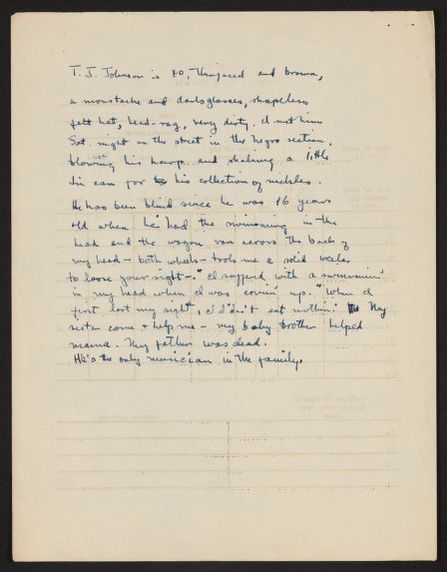 T. J. Johnson is 80, thinfaced and brown,
a moustache and dark glasses, shapeless
felt hat, head-rag, very dirty. I met him
Sat. night on the street in the negro section,
blowing his harp and shaking a little
tin can for his collection of nickles.
He has been blind since he was 16 years
old when he "had the swimming in the
head and the wagon run across the back of
my head - both wheels - took me a solid week
to loose your sight -" "I suffered with a swimmin'
in my head when I was comin' up." "When I
first lost my sight, I didn't eat nothin'. My
sister come & help me - my baby brother helped
mama. My father was dead.
He's the only musician in the family.